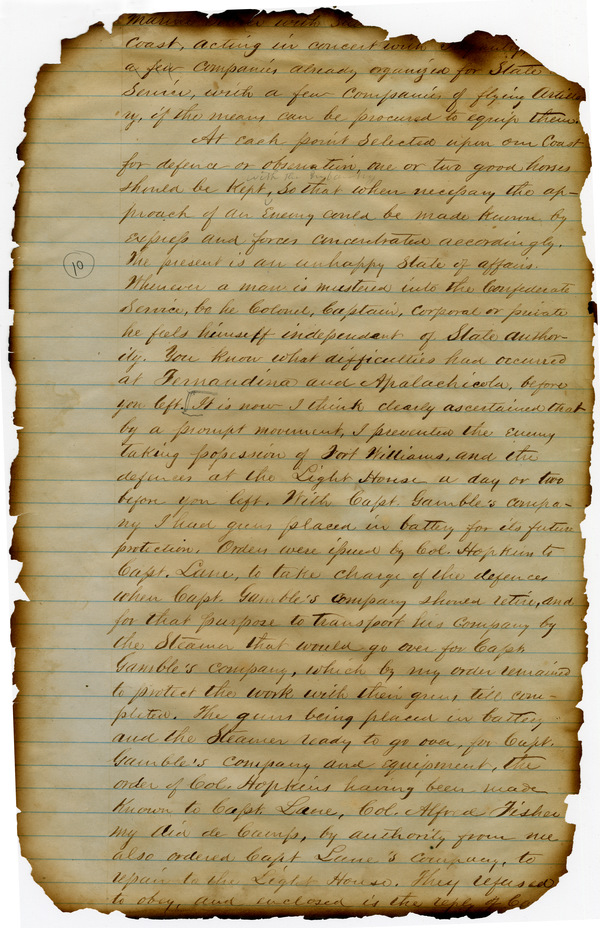 Coast, acting in concert with
a few Companies already organized for State
Service, with a few Companies of flying Artille
ry, if the means can be procured to equip them.
At each point Selected upon our Coast
for defence or observation, one or two good horses
with the
should be Kept, So that when necessary the ap-
proach of an Enemy could be made known by
Express and forces concentrated accordingly.
10
The present is an unhappy State of affairs.
Whenever a man is mustered into the Confederate
Service, be he Colonel, Captain, Corporal or private
he feels himself independent of State author-
ity. You know what difficulties had occurred
at Fernandina and Apalachicola, before
you left. [It is now I think clearly ascertained that
by a prompt movement, I prevented the Enemy
taking possession of Fort Williams, and the
defences at the Light House a day or two
before you left. With Capt. Gamble's compa-
ny I had guns placed in battery for its future
protection. Orders were issued by Col. Hopkins to
Capt. Lane, to take charge of the defences
when Capt Gamble's company should retire, and
for that purpose to transport his Company by
the Steamer that would go over for Capt
Gamble's company, which by my order remained
to protect the work with their guns till com-
pleted. The guns being placed in battery
and the Steamer ready to go over, for Capt.
Gamble's company and equipment, the
order of Col. Hopkins having been made
Known to Capt. Lane, Col. Alfred Fisher
my Aid de Camp, by authority from me
also ordered Capt Lane's company, to
repair to the Light House. They refused
to obey, and enclosed is the reply of